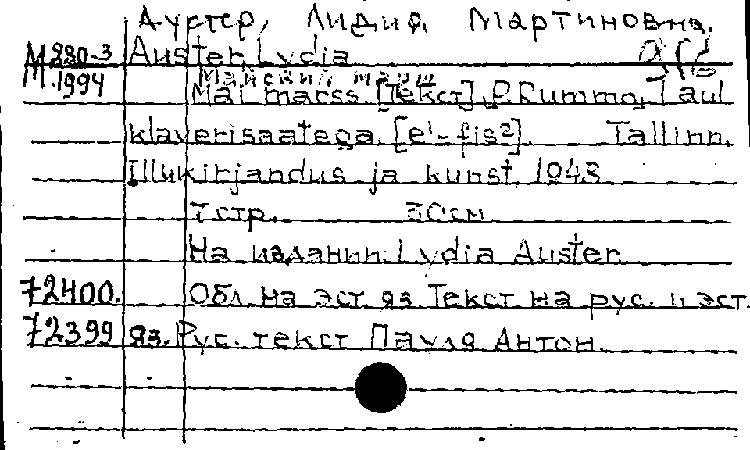 Аустер, Лидия Мартиновна.
М 280-3 Auster, Lydia
М.1994 Майский марш
Mai marss. [Текст] P. Rummo. Laul
klaverisaatega. [e¹-fis²]. Tallinn.
Ilukirjandus ja kunst, 1948
7 стр. 30см
На издании: Lydia Auster.
72400. Обл. на эст. яз. Текст на рус. и эст.
72399 яз. Рус. текст Пауля Антон.